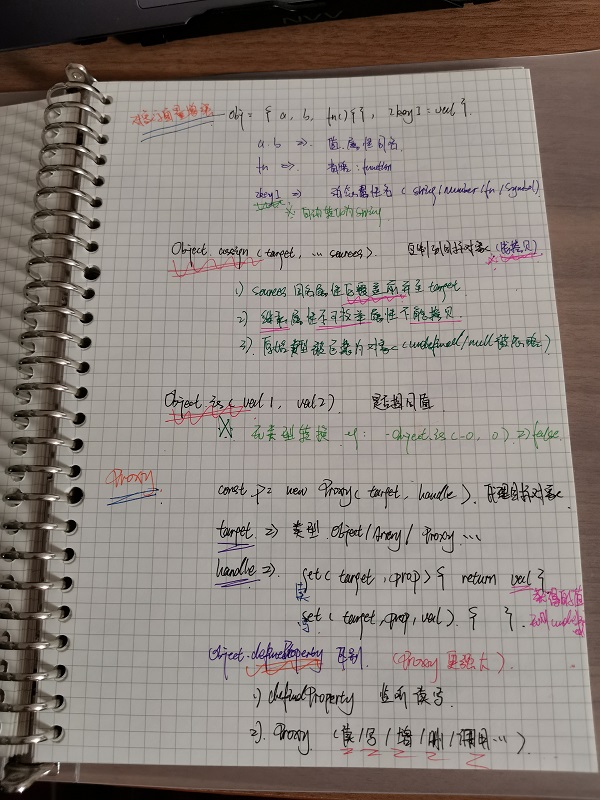 对象字面量增强 obj = { a, b, fn(){}, [key]: val }.
a.b => 值.属性同名
fn => 省略: function
[key] => 动态属性名 (string/number/fn/Symbol)
※ 自动转为string
Object.assign (target, ... sources). 复制到目标对象 (浅拷贝)
1) sources 同名属性后覆盖前并至 target.
2) 继承属性不可枚举属性不能拷贝
3). 原始类型被包装为对象 (undefined/null 被忽略)
Object.is (val1, val2) 是否相同值
无类型转换 eg: Object.is(-0, 0) => false
Proxy const p = new Proxy (target, handle). 代理目标对象
target => 类型 Object/Array/Proxy...
handle => get (target, prop) { return val }
读 获得的值
写 set (target, prop, val). { }. 否则 undefined
Object.defineProperty 区别 (Proxy 更强大).
1) defindProperty 监听读写
2). Proxy (读/写/增/删/调用...).